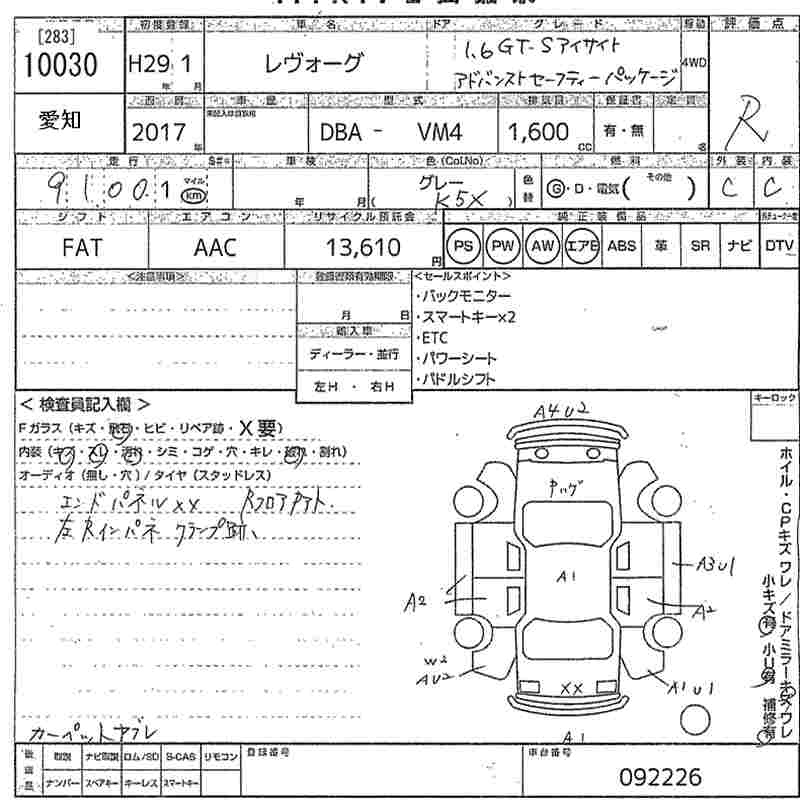 [283]
10030
初度登録 車名 ドア グレード 駆動 評価点
H29年 1月 レヴォーグ 1.6 GT-Sアイサイト 4WD R
アドバンストセーフティーパッケージ
愛知
車歴 型式 排気量 保証書 定員
2017年 DBA - VM4 1,600cc 有・無 名
走行 車検 色(Col.No) 燃料 外装 内装
91001 マイル km 年 月 グレー (K5X) 色替 G・D・電気( その他 ) C C
シフト エアコン リサイクル預託金 純正装備品
FAT AAC 13,610円 PS PW AW エアB ABS 革 SR ナビ DTV
<注意事項> 登録書類有効期限 <セールスポイント>
月 日
輸入車
ディーラー・並行
左H ・ 右H
・バックモニター
・スマートキー×2
・ETC
・パワーシート
・パドルシフト
< 検査員記入欄 >
Fガラス (キズ・飛石・ヒビ・リペア跡・X要)
内装 (キズ・スレ・汚れ・シミ・コゲ・穴・キレ・破れ・割れ)
オーディオ (無し・穴) / タイヤ (スタッドレス)
エンドパネルXX Rフロアアアト、
左Rインパネ クランプ跡、
カーペットヤブレ
キーロック
ホイル・CPキズ ワレ/ドアミラーキズ/ワレ
小キズ有 小U有 補修有
A4U2
A1
A3U1
A2
A2
W2
AU2
XX
A1U1
A1
後送品 取説 ナビ取説 ロム/SD S-CAS リモコン 登録番号 車台番号
ナンバー スペアキー キーレス スマートキー 092226